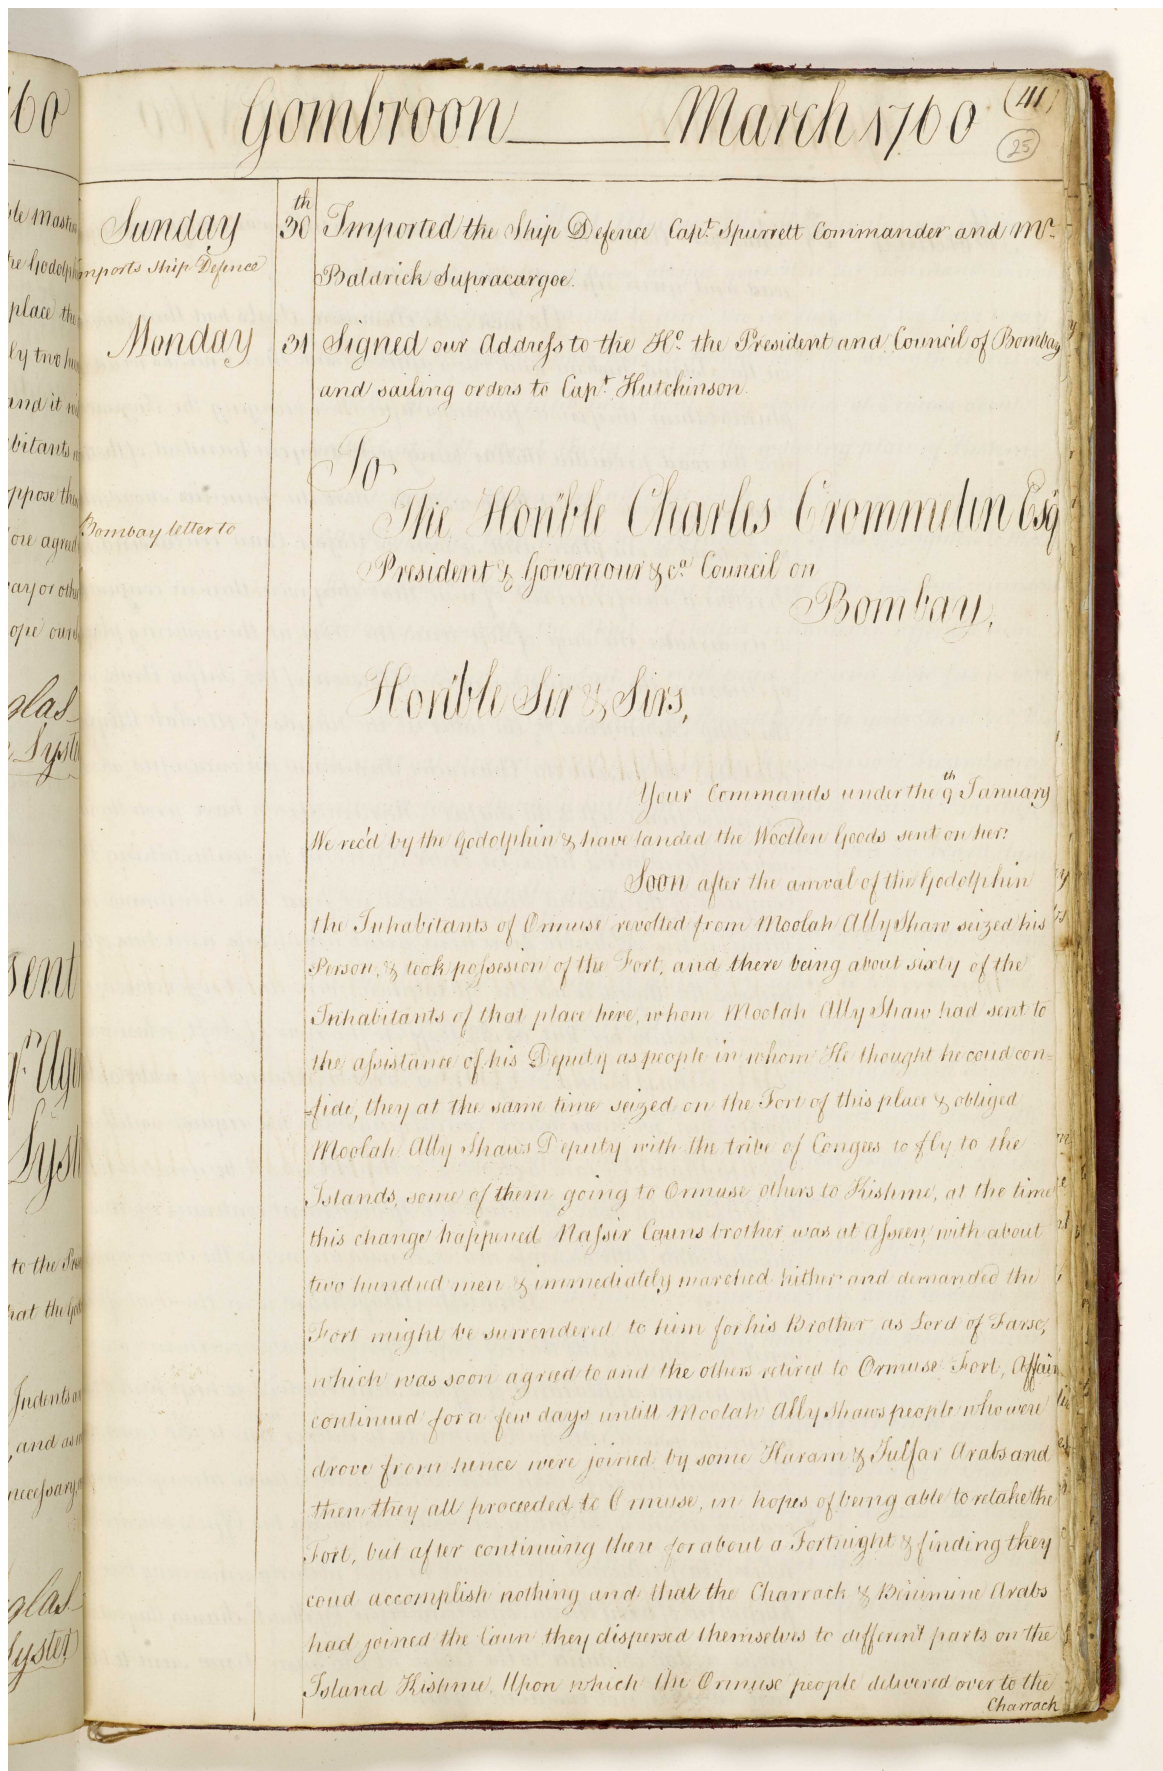 Gombroon March 1760
(41)
25
Sunday
30th
Imported the Ship Defence Capt. Spurrett Commander and Mr.
imports Ship Defence
Baldrick Supracargoe.
Monday
31
Signed our Address to the Ho. the President and Council of Bombay
and sailing orders to Capt. Hutchinson.
To
The Hon'ble Charles Crommelin Esq
Bombay letter to
President & Governour & ca. Council on
Bombay,
Hon'ble Sir & Sirs,
Your Commands under the 9th January
We rec'd by the Godolphin & have landed the Woollen Goods sent on her.
Soon after the arrival of the Godolphin
the Inhabitants of Ormuse revolted from Moolah Ally Shaw seized his
Person, & took possesion of the Fort, and there being about sixty of the
Inhabitants of that place here, whom Moolah Ally Shaw had sent to
the assistance of his Deputy as people in whom He thought he coud con=
=fide, they at the same time seized on the Fort of this place & obliged
Moolah Ally Shaws Deputy with the tribe of Congees to fly to the
Islands, some of them going to Ormuse others to Kishme, at the time
this change happened Nassir Cauns brother was at Asseen, with about
two hundred men & immediately marched hither and demanded the
Fort might be surrendered to him for his Brother as Lord of Farse,
which was soon agreed to and the others retired to Ormuse Fort, Affairs
continued for a few days untill Moolah Ally Shaws people who were
drove from hence were joined by some Huram & Julfar Arabs and
then they all proceeded to Ormuse, in hopes of being able to retake the
Fort, but after continuing there for about a Fortnight & finding they
coud accomplish nothing and that the Charrack & Benimine Arabs
had joined the Caun they dispersed themselves to different parts on the
Island Kishme. Upon which the Ormuse people delivered over to the
Charrack